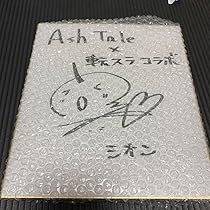 Ash Tale
×
転スラコラボ
シオン